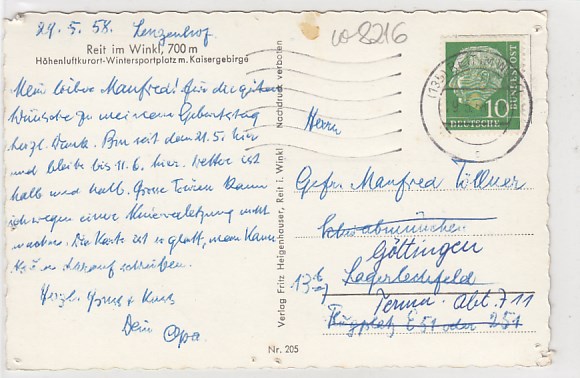 29.5.58. Lenzenhof
Reit im Winkl, 700 m
Höhenluftkurort-Wintersportplatz m. Kaisergebirge
Mein lieber Manfred! Für die guten
Wünsche zu meinem Geburtstag
herzl. Dank. Bin seit dem 21.5. hier
und bleibe bis 11.6. hier. Wetter ist
halb und halb. Grosse Touren kann
ich wegen einer Knieverletzung nicht
machen. Die Karte ist so glatt, man kann
darauf schreiben.
Herzl. Gruss & Kuss
Dein Opa.
Nachdruck verboten
Verlag Fritz Heigenhauser, Reit i. Winkl
Nr. 205
w-8216
10
DEUTSCHE
BUNDESPOST
Herrn
Gefr. Manfred Töllner
Schwabmünchen
Göttingen
Lagerlechfeld
13-6
Ferma. Abt. 711
Flugplatz E 51 oder 251